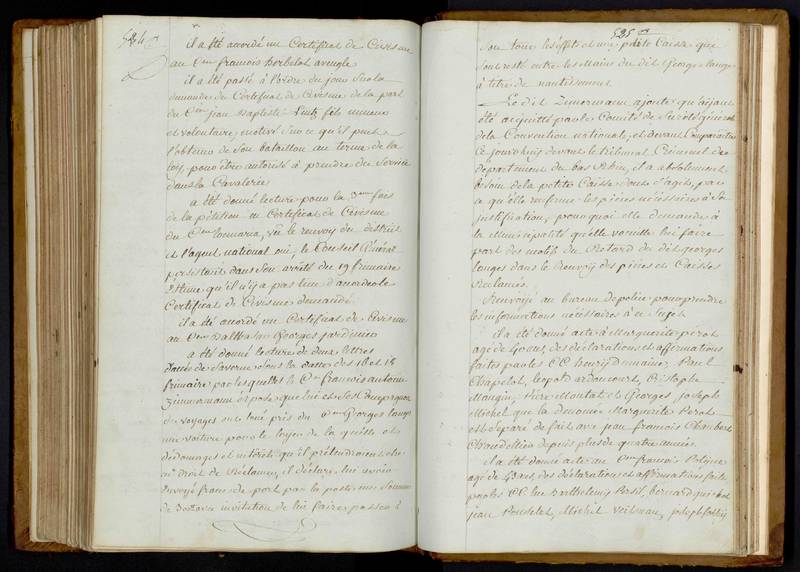 524
il a été accordé un Certificat de Civisme
au Cen francois Borbelot aveugle
il a été passé à l'ordre du jour sur la
demande de Certificat de Civisme de la part
du Cen jean Baptiste Lutz fils mineur
et volontaire motivé sur ce qu'il peut
l'obtenir de Son bataillon au terme de la
loi, pour être autorisé à prendre du Service
dans la Cavalerie
a été donné lecture pour la 3eme fois
de la pétition en Certificat de Civisme
du Cen vu le renvoy du district
et l'agent national oui, le Conseil Général
persistant dans Son arrêté du 19 frimaire
Estime qu'il n'y a pas lieu d'accorder le
Certificat de Civisme demandé
il a été accordé un Certificat de Civisme
au Cen Balthasar Georges jardinier
a été donné lecture de deux lettres
datées de Saverne sous la datte des 16 et 18
frimaire par lesquelles le Cen francois antoine
Zimmermann expose que lui et
du voyages ont loué pris du Cen Georges lange
une voiture pour le loyer de la quelle et
dedomages et intérêts qu'il prétendroient etre
en droit de Réclamer, il déclare lui avoir
envoyé franc de port par la poste une Somme
de invitation de lui faire passer
525
Son tour les éffets et une petite Caisse que
sont resté entre les Mains du dit George lange
à titre de nantissement
Le dit Zimermann ajoute qu'ayant
été acquitté par le Comité de Sureté général
de la Convention nationale, et devant Comparaitre
ce jourd'huy devant le tribunal Criminel du
departement du bas Rhin, il a absolument
besoin de la petite Caisse dont s'agit, par
ce qu'elle renferme les pièces nécessaires à Sa
justification, pourquoi elle demande à
la Municipalité qu'elle veuille lui faire
part des motifs du Retard du dit Georges
langes dans le Renvoy des pièces et Caisses
Reclamés.
Renvoyé au bureau de police pour prendre
les informations nécessaires à ce Sujet
il a été donné acte à Marguerite perot
agé de 40 ans, des déclarations et affirmations
faites par les C.C. henry Dumaine, Paul
Chapelot, leopold ardoucourt, Cristophe
Mangin, Pierre Moutat et Georges, joseph
Michel que la denomée Marguerite Perot
est Separé de fait avec jean francois Chaubert
Chandellier depuis plus de quatre année
il a été donné acte au Cen francois
agé de 43 ans, des déclarations et affirmations faite
par les C.C. Luc Barthelemy Basil, bernard
jean Pouselet, Michel joseph